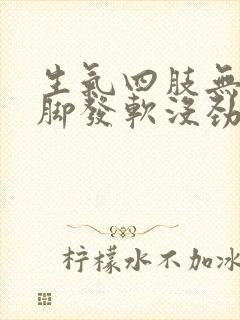 生氣四肢無
腳發軟沒勁
柠檬水不加冰